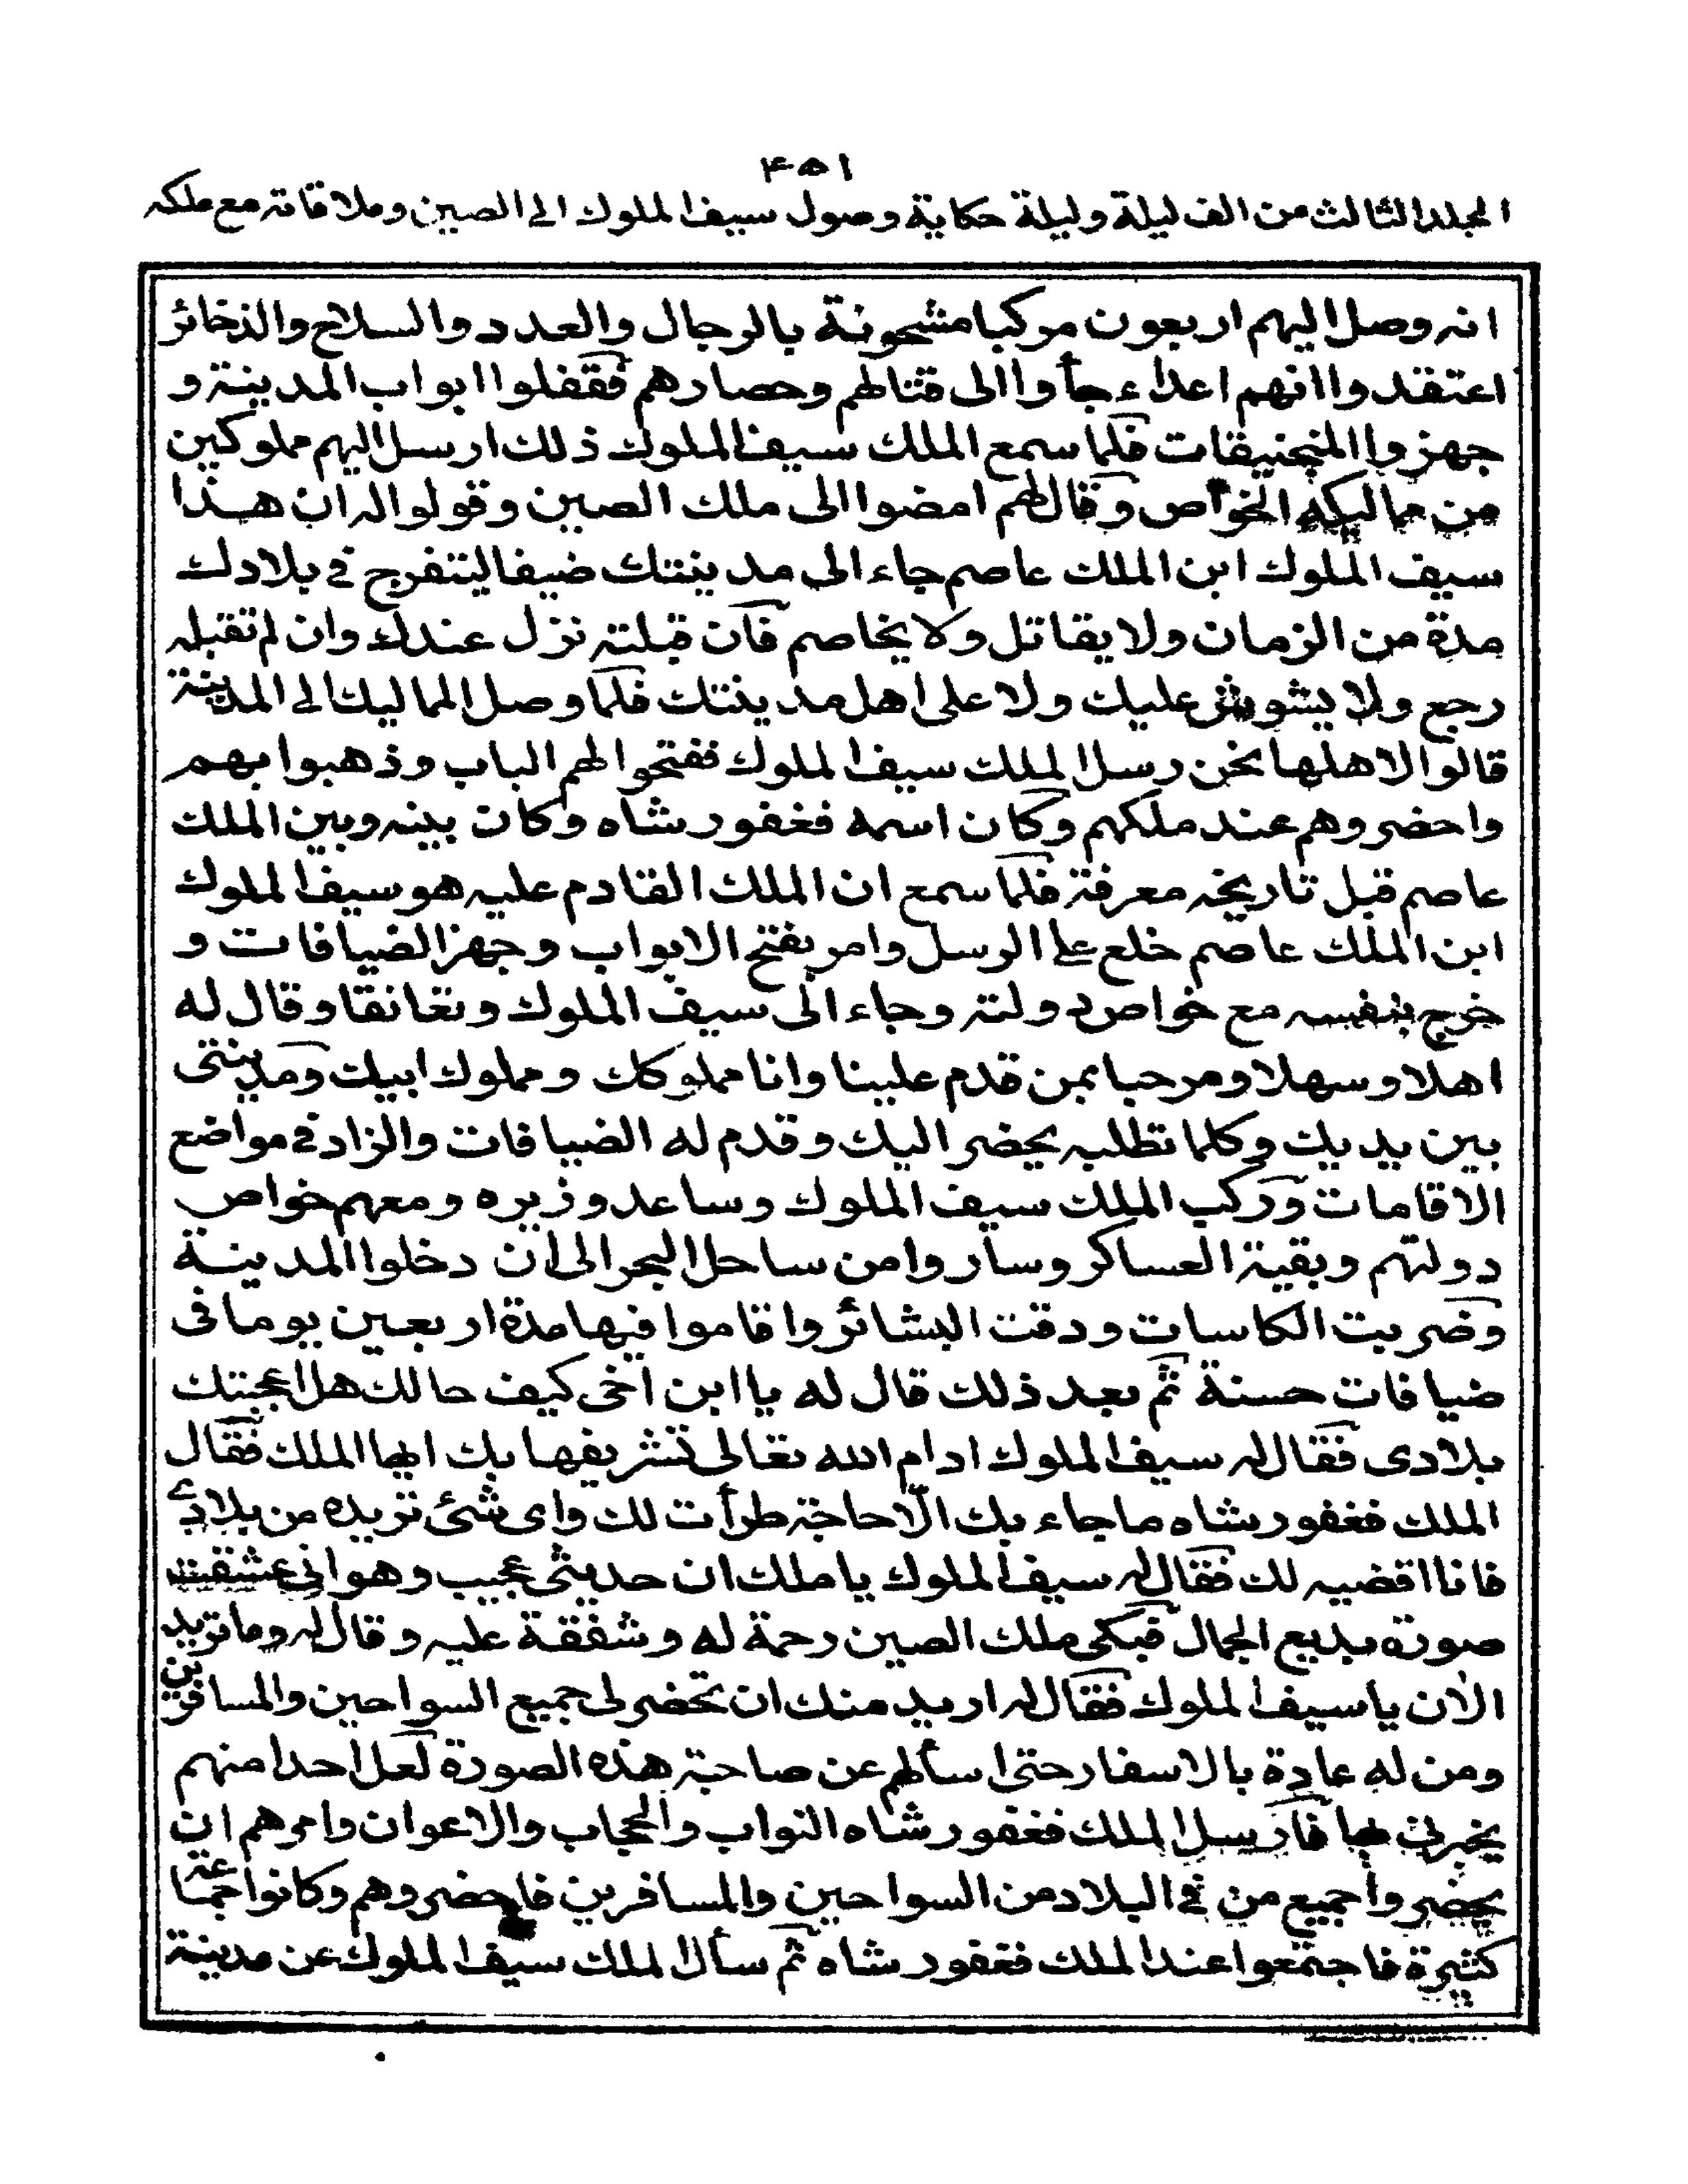 ٤٥١
المجلد الثالث من الف ليلة وليلة حكاية وصول سيف الملوك الى الصين وملاقاته مع ملكه
انه وصل اليهم اربعون مركبا مشحونة بالرجال والعدد والسلاح والذخائر
اعتقدوا انهم اعداء جاؤا الى قتالهم وحصارهم فقفلوا ابواب المدينة و
جهزوا المنجنيقات فلما سمع الملك سيف الملوك ذلك ارسل اليهم مملوكين
من مماليكه الخواص وقال لهم امضوا الى ملك الصين وقولوا له ان هذا
سيف الملوك ابن الملك عاصم جاء الى مدينتك ضيفا ليتفرج في بلادك
مدة من الزمان ولا يقاتل ولا يخاصم فان قبلته نزل عندك وان لم تقبله
رجع ولا يشوش عليك ولا على اهل مدينتك فلما وصل المماليك الى المدينة
قالوا لاهلها نحن رسل الملك سيف الملوك ففتحوا لهم الباب وذهبوا بهم
واحضروهم عند ملكهم وكان اسمه فغفور شاه وكان بينه وبين الملك
عاصم قبل تاريخه معرفة فلما سمع ان الملك القادم عليه هو سيف الملوك
ابن الملك عاصم خلع على الرسل وامر بفتح الابواب وجهز الضيافات و
خرج بنفسه مع خواص دولته وجاء الى سيف الملوك وتعانقا وقال له
اهلا وسهلا ومرحبا بمن قدم علينا وانا مملوكك ومملوك ابيك ومدينتى
بين يديك وكلما تطلبه يحضر اليك وقدم له الضيافات والزاد في مواضع
الاقامات وركب الملك سيف الملوك وساعد وزيره ومعهم خواص
دولتهم وبقية العساكر وساروا من ساحل البحر الى ان دخلوا المدينة
وضربت الكاسات ودقت البشائر واقاموا فيها مدة اربعين يوما فى
ضيافات حسنة ثم بعد ذلك قال له يا ابن اخى كيف حالك هل اعجبتك
بلادى فقال له سيف الملوك ادام الله تعالى تشريفها بك ايها الملك فقال
الملك فغفور شاه ما جاء بك الّا حاجة طرأت لك واى شئ تريده من بلادي
فانا اقضيه لك فقال له سيف الملوك يا ملك ان حديثى عجيب وهو انى عشقت
صورة بديع الجمال فبكى ملك الصين رحمة له وشفقة عليه وقال له وما تريد
الأن يا سيف الملوك فقال له اريد منك ان تحضر لى جميع السواحين والمسافرين
ومن له عادة بالاسفار حتى اسألهم عن صاحبة هذه الصورة لعل احدا منهم
يخبرنى بها فارسل الملك فغفور شاه النواب والحجاب والاعوان وامرهم ان
يحضروا جميع من في البلاد من السواحين والمسافرين فاحضروهم وكانوا جماعة
كثيرة فاجتمعوا عند الملك فغفور شاه ثم سأل الملك سيف الملوك عن مدينة